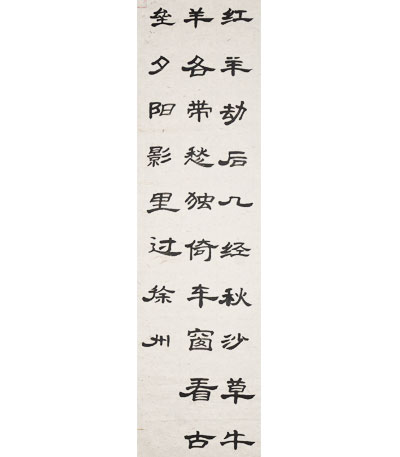 红羊劫后几经秋沙草牛
羊各带愁独倚车窗看古
垒夕阳影里过徐州